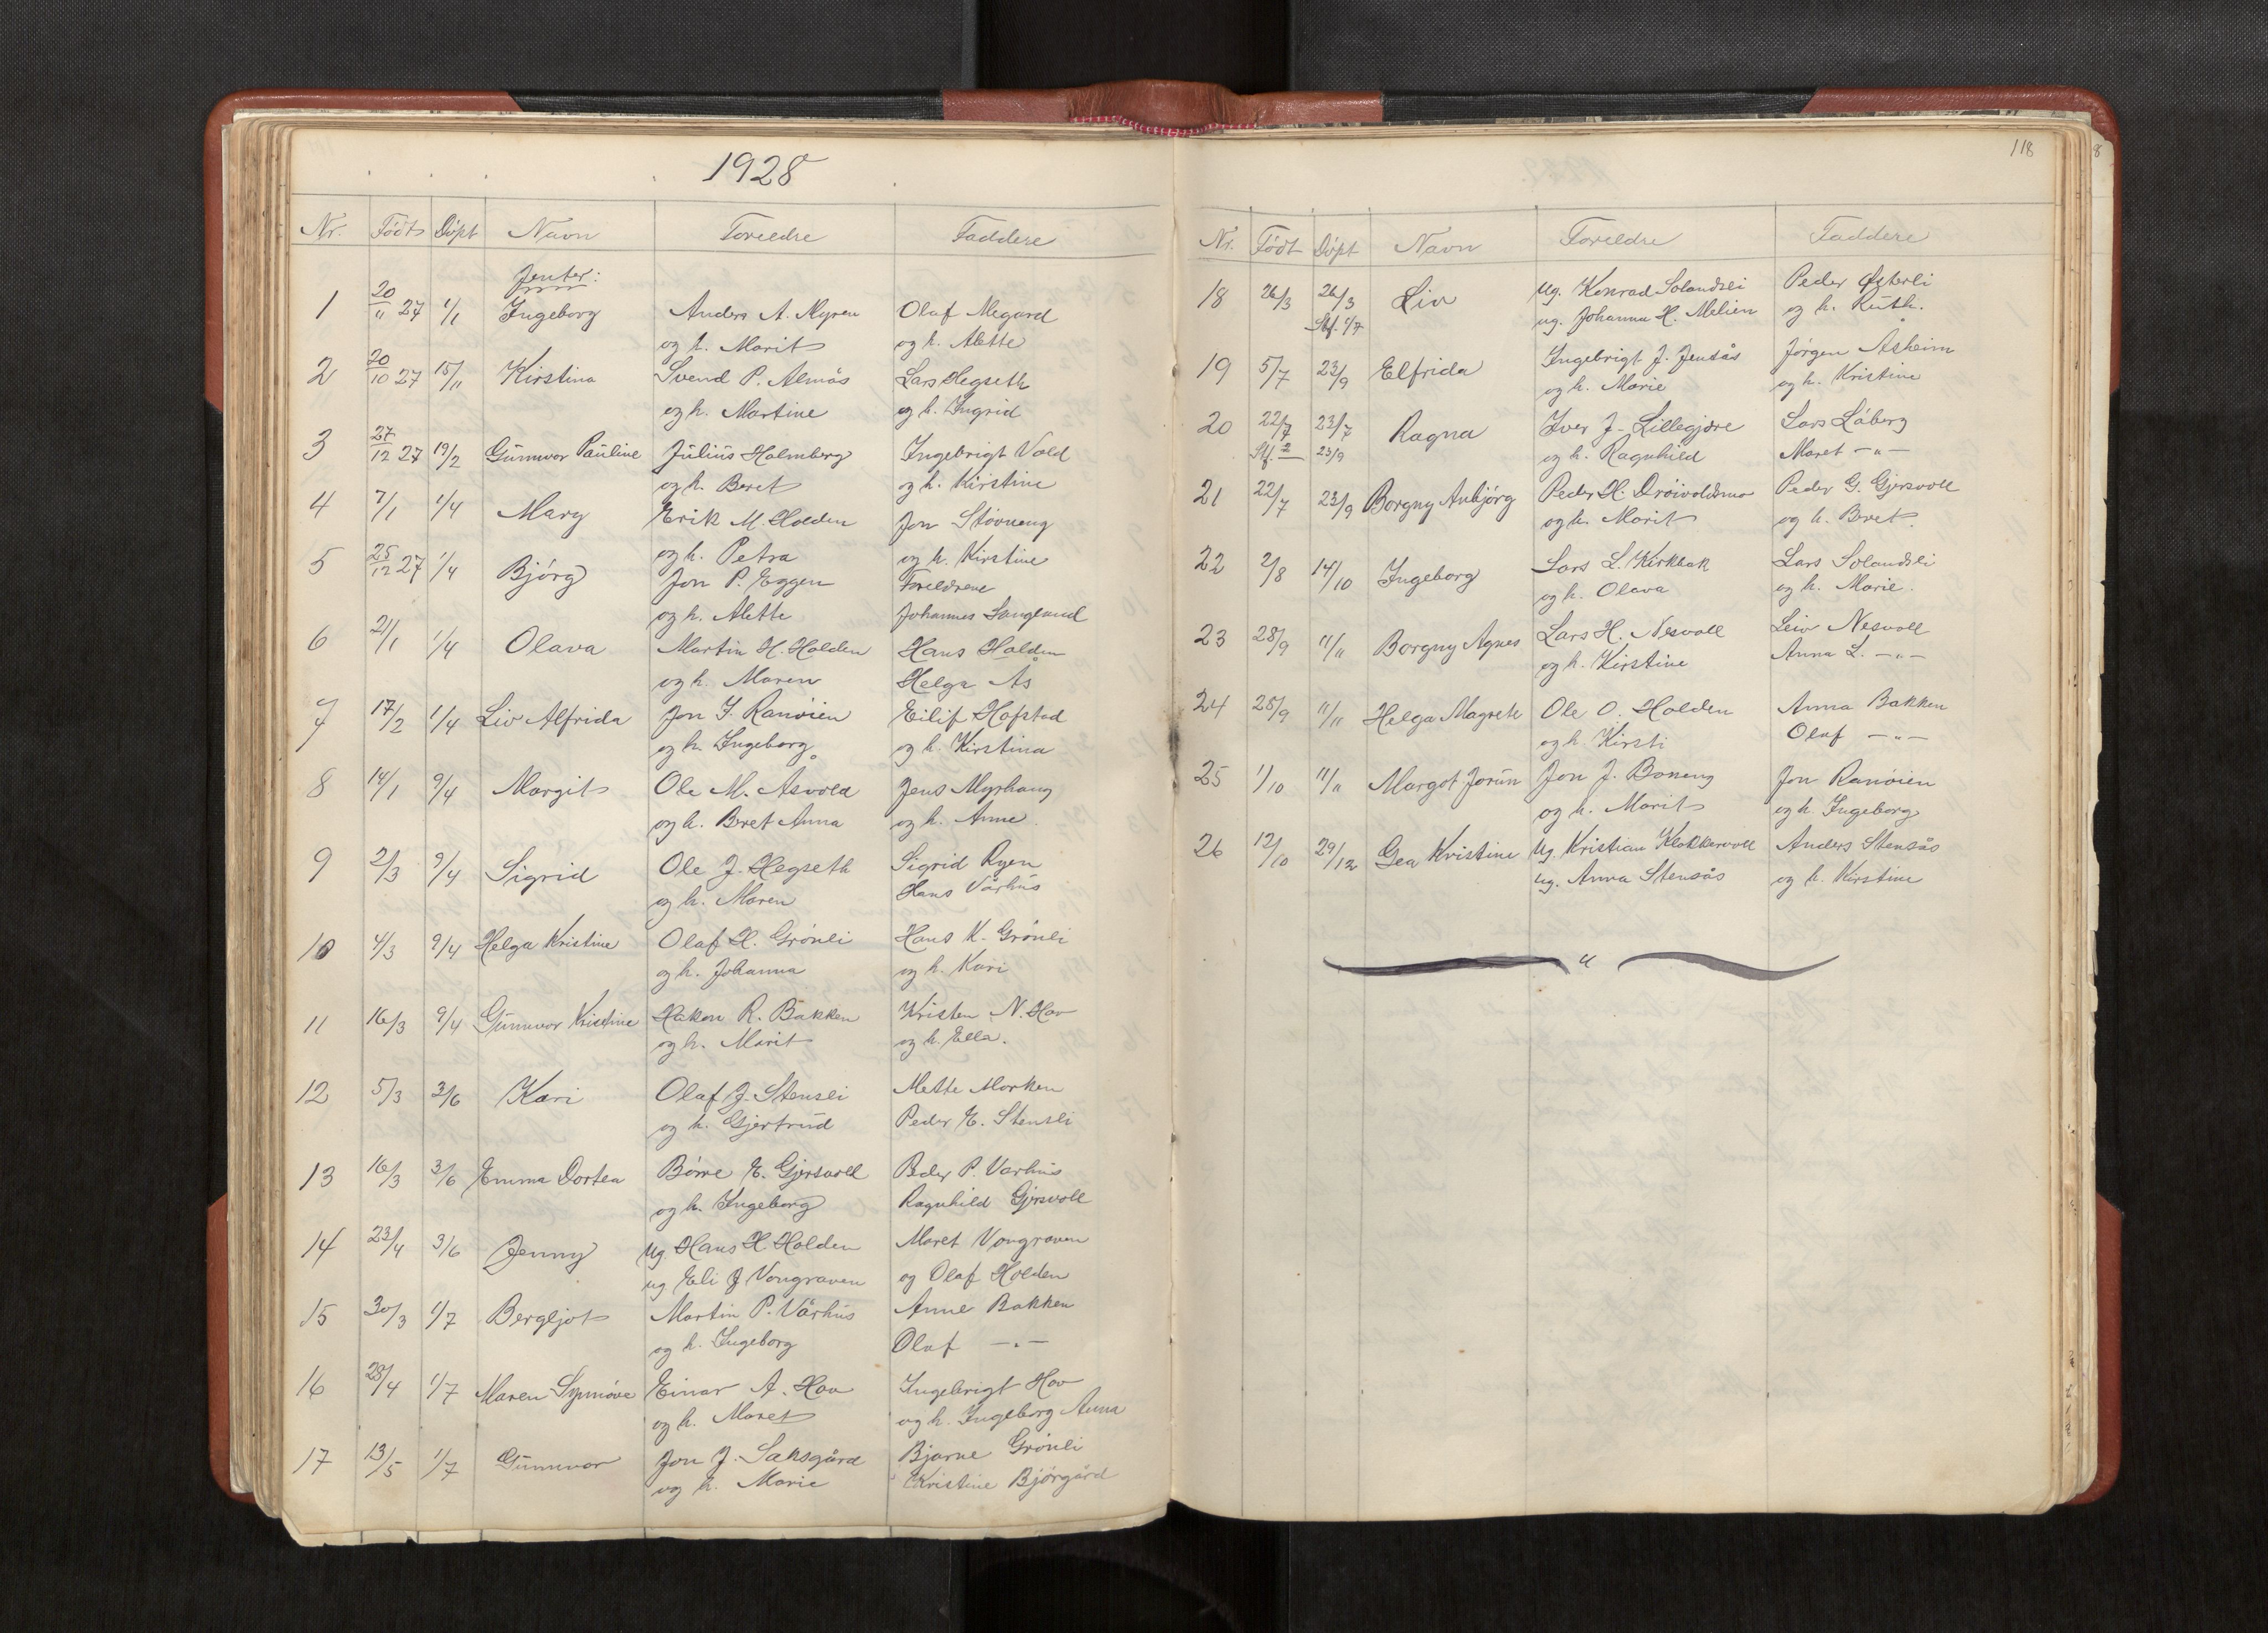 1928
Nr. Födt Döpt Navn Foreldre Faddere
Jenter:
1 20/11 27 1/1 Ingeborg Anders A. Myren Olaf Megard
og h. Marit og h. Alette
2 20/10 27 15/11 Kirstina Svend P. Almås Lars Hegseth
og h. Martine og h. Ingrid
3 27/12 27 19/2 Gunnvor Pauline Julius Holmberg Ingebrigt Vold
og h. Beret og h. Kirstine
4 7/1 1/4 Mary Erik M. Holden Jon Stövneng
og h. Petra og h. Kirstine
5 25/12 27 1/4 Björg Jon P. Eggen Foreldrene
og h. Alette Johannes Langland
6 21/1 1/4 Olava Martin H. Holden Hans Holden
og h. Maren Helga Ås
7 17/2 1/4 Liv Alfrida Jon J. Ranöien Eilif Hofstad
og h. Ingeborg og h. Kirstina
8 14/1 9/4 Margit Ole M. Åsvold Jens Myrhaug
og h. Beret Anna og h. Anne
9 2/3 9/4 Sigrid Ole J. Hegseth Sigrid Ryen
og h. Maren Hans Vårhus
10 4/3 9/4 Helga Kristine Olaf H. Grönli Hans K. Grönli
og h. Johanna og h. Kari
11 16/3 9/4 Gunnvor Kristine Håkon R. Bakken Kristen N. Hov
og h. Marit og h. Ella.
12 5/3 3/6 Kari Olaf J. Stensli Mette Morken
og h. Gjertrud Peder E. Stensli
13 16/3 3/6 Emma Dortea Börre E. Gjersvold Peder P. Varhus
og h. Ingeborg Ragnhild Gjersvoll
14 23/4 3/6 Jenny Ug. Hans H. Holden Maret Vongraven
ug Eli J Vongraven og Olaf Holden
15 30/3 1/7 Bergljot Martin P. Vårhus Anne Bakken
og h. Ingeborg Olaf —"—
16 28/4 1/7 Maren Synnöve Einar A. Hov Ingebrigt Hov
og h. Maret og h. Ingeborg Anna
17 13/5 1/7 Gunnvor Jon J. Saksgård Bjarne Grönli
og h. Marie Kristine Björgård
118
Nr. Födt Döpt Navn Foreldre Faddere
18 26/3 26/3 Liv Ug. Konrad Solandsli Peder Österli
Stf. 1/7 ug. Johanna H. Melien og h. Ruth.
19 5/7 23/9 Elfrida Ingebrigt J. Jensås Jörgen Åsheim
og h. Marie og h. Kristine
20 22/7 23/7 Ragna Iver J. Lillegjäre Lars Låberg
Stf. 23/9 og h. Ragnhild Maret —"—
21 22/7 23/9 Borgny Anbjörg Peder H. Dröivoldsmo Peder G. Gjersvoll
og h. Marit og h. Beret.
22 2/8 14/10 Ingeborg Lars L. Kirkbak Lars Solandsli
og h. Olava og h. Marie.
23 28/9 11/11 Borgny Agnes Lars H. Nesvoll Leiv Nesvoll
og h. Kirstine Anna L. —"—
24 25/9 11/11 Helga Magrete Ole O. Holden Anna Bakken
og h. Kirsti Olaf —"—
25 1/10 11/11 Margot Jorun Jon J. Boneng Jon Ranöien
og h. Marit og h. Ingeborg
26 12/10 29/12 Gea Kristine Ug. Kristian Klokkervoll Anders Stensås
ug. Anna Stensås og h. Kirstine